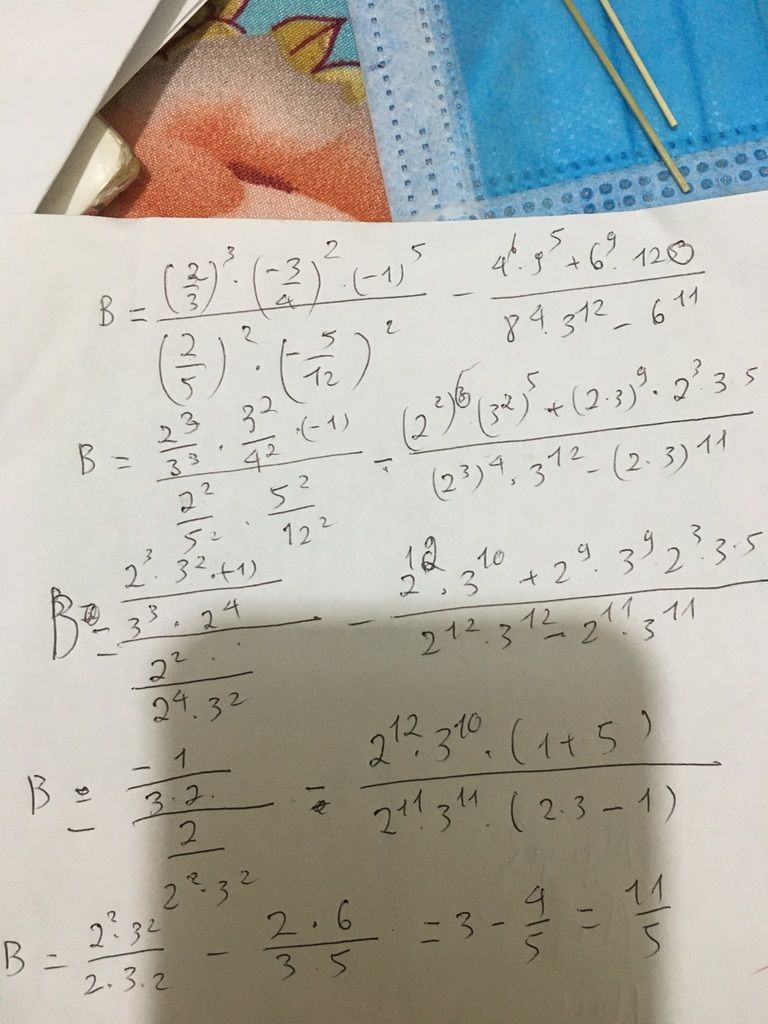 B = \frac{(\frac{2}{3})^3 \cdot (\frac{-3}{4})^2 \cdot (-1)^5}{(\frac{2}{5})^2 \cdot (-\frac{5}{12})^2} - \frac{4^6 \cdot 9^5 + 6^9 \cdot 120}{8^4 \cdot 3^{12} - 6^{11}}
B = \frac{\frac{2^3}{3^3} \cdot \frac{3^2}{4^2} \cdot (-1)}{\frac{2^2}{5^2} \cdot \frac{5^2}{12^2}} - \frac{(2^2)^6 \cdot (3^2)^5 + (2 \cdot 3)^9 \cdot 2^3 \cdot 3 \cdot 5}{(2^3)^4 \cdot 3^{12} - (2 \cdot 3)^{11}}
B = \frac{\frac{2^3 \cdot 3^2 \cdot (-1)}{3^3 \cdot 2^4}}{\frac{2^2}{2^4 \cdot 3^2}} - \frac{2^{12} \cdot 3^{10} + 2^9 \cdot 3^9 \cdot 2^3 \cdot 3 \cdot 5}{2^{12} \cdot 3^{12} - 2^{11} \cdot 3^{11}}
B = \frac{\frac{-1}{3 \cdot 2}}{\frac{2}{2^2 \cdot 3^2}} - \frac{2^{12} \cdot 3^{10} \cdot (1 + 5)}{2^{11} \cdot 3^{11} \cdot (2 \cdot 3 - 1)}
B = \frac{2^2 \cdot 3^2}{2 \cdot 3 \cdot 2} - \frac{2 \cdot 6}{3 \cdot 5} = 3 - \frac{4}{5} = \frac{11}{5}